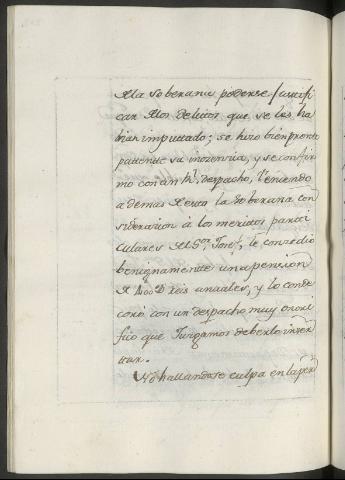 A la Soberanu poderse justifi
car Alos delitos, que se les ha
bian imputtado; se hizo bien pronto
pattente su inozencia, y se confir
mo con un Rl. despacho, teniendo
ademas Aesto la Soberana con
siderazion à los meritos parti
culares Al Sor. Josef, le conzedió
benignamente una pension
A 400 D reis anuales, y lo conde
coró con un despacho muy onori
fico que Juzgamos deberlo inser
ttar.
No hallandose culpa en la per